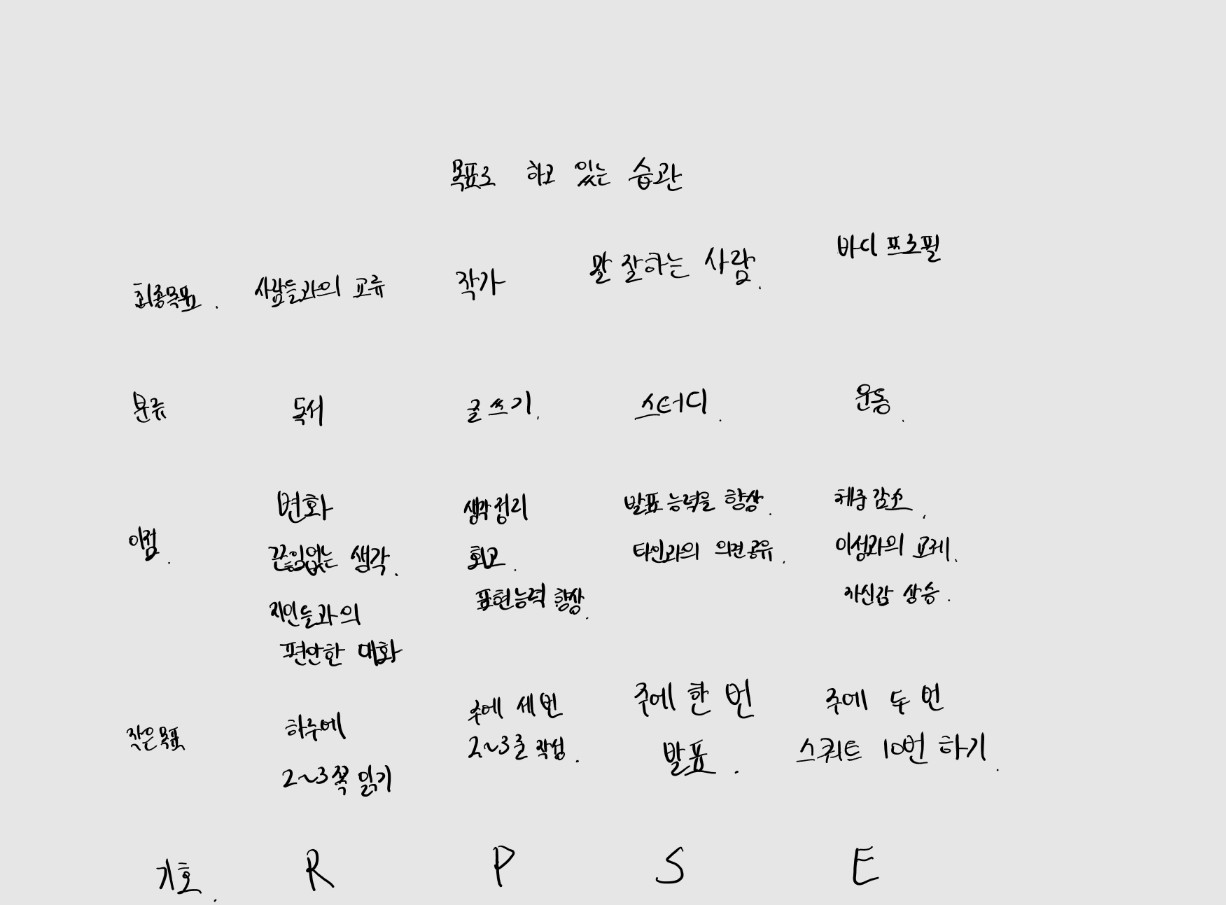 목표로 하고 있는 습관
최종목표. 사람들과의 교류 작가 말 잘하는 사람. 바디 프로필
분류 독서 글쓰기. 스터디. 운동.
이점. 변화 생각정리 발표 능력을 향상. 체중 감소.
끈임없는 생각. 회고. 타인과의 의견 공유. 이성과의 교제.
지인들과의 표현능력 향상. 자신감 상승.
편안한 대화
작은 목표 하루에 주에 세 번 주에 한 번 주에 두 번
2~3쪽 읽기 2~3줄 작성. 발표. 스쿼트 10번 하기.
기호. R P S E